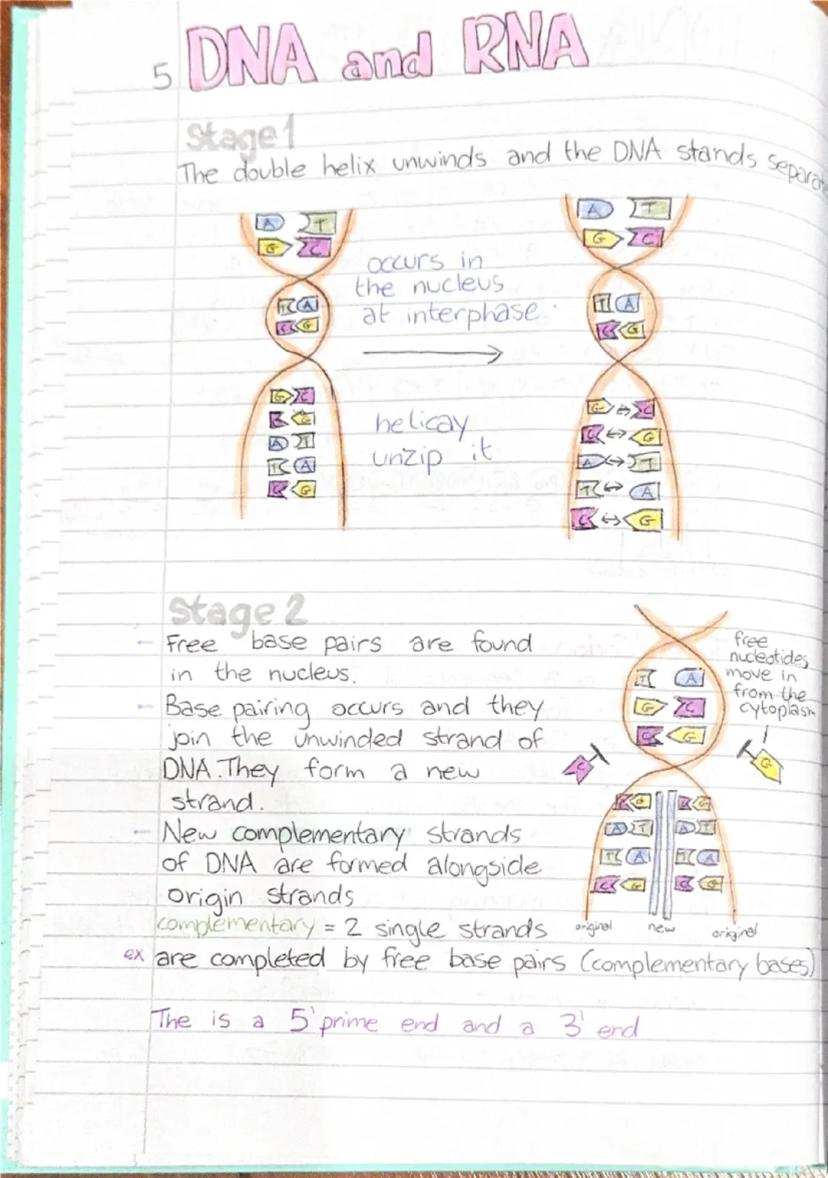 5 DNA and RNA
Stage 1
The double helix unwinds and the DNA stands separat
A T A T
G C G C
occurs in
the nucleus
at interphase.
T A T A
C G C G
helicay
unzip it
G C G C
C G C G
A T A T
T A T A
C G C G
Stage 2
- Free base pairs are found
in the nucleus.
- Base pairing occurs and they
join the unwinded strand of
DNA. They form a new
strand.
- New complementary strands
of DNA are formed alongside
origin strands
complementary = 2 single strands
ex are completed by free base pairs (complementary bases)
free
nucleotides
move in
from the
cytoplasm
T A
G C
C G
C G
C G C G
A T A T
T A T A
C G C G
original new original
The is a 5' prime end and a 3' end